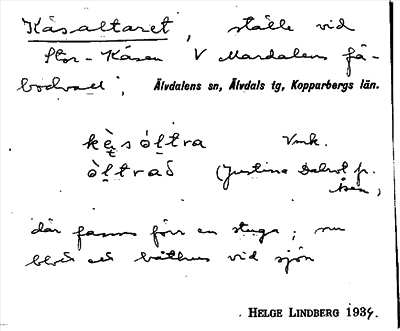 Kåsaltaret, ställe vid
Stor-Kåsen V Mardalens fä-
bodvall; Älvdalens sn, Älvdals tg, Kopparbergs län.
kè̱s ól̥tra Vmk.
òl̥traδ (Justina Dalrot fr.
Åsen,
där fanns förr en stuga; nu
blott ett båthus vid sjön
HELGE LINDBERG 1934.